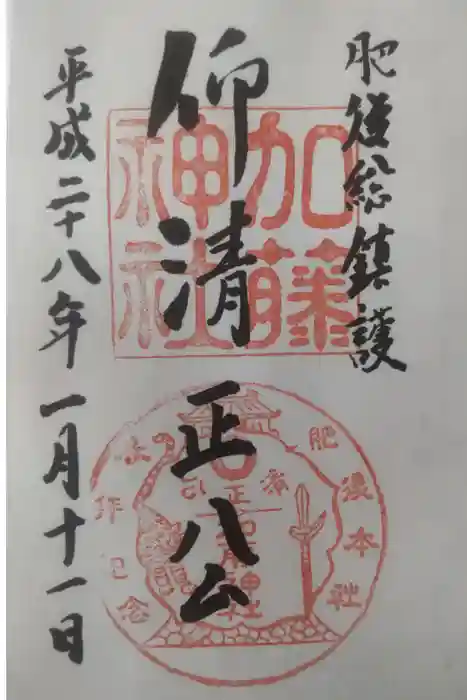 肥後総鎮護
仰清正公
平成二十八年一月十一日
加藤
神社
肥後本社
加藤神社